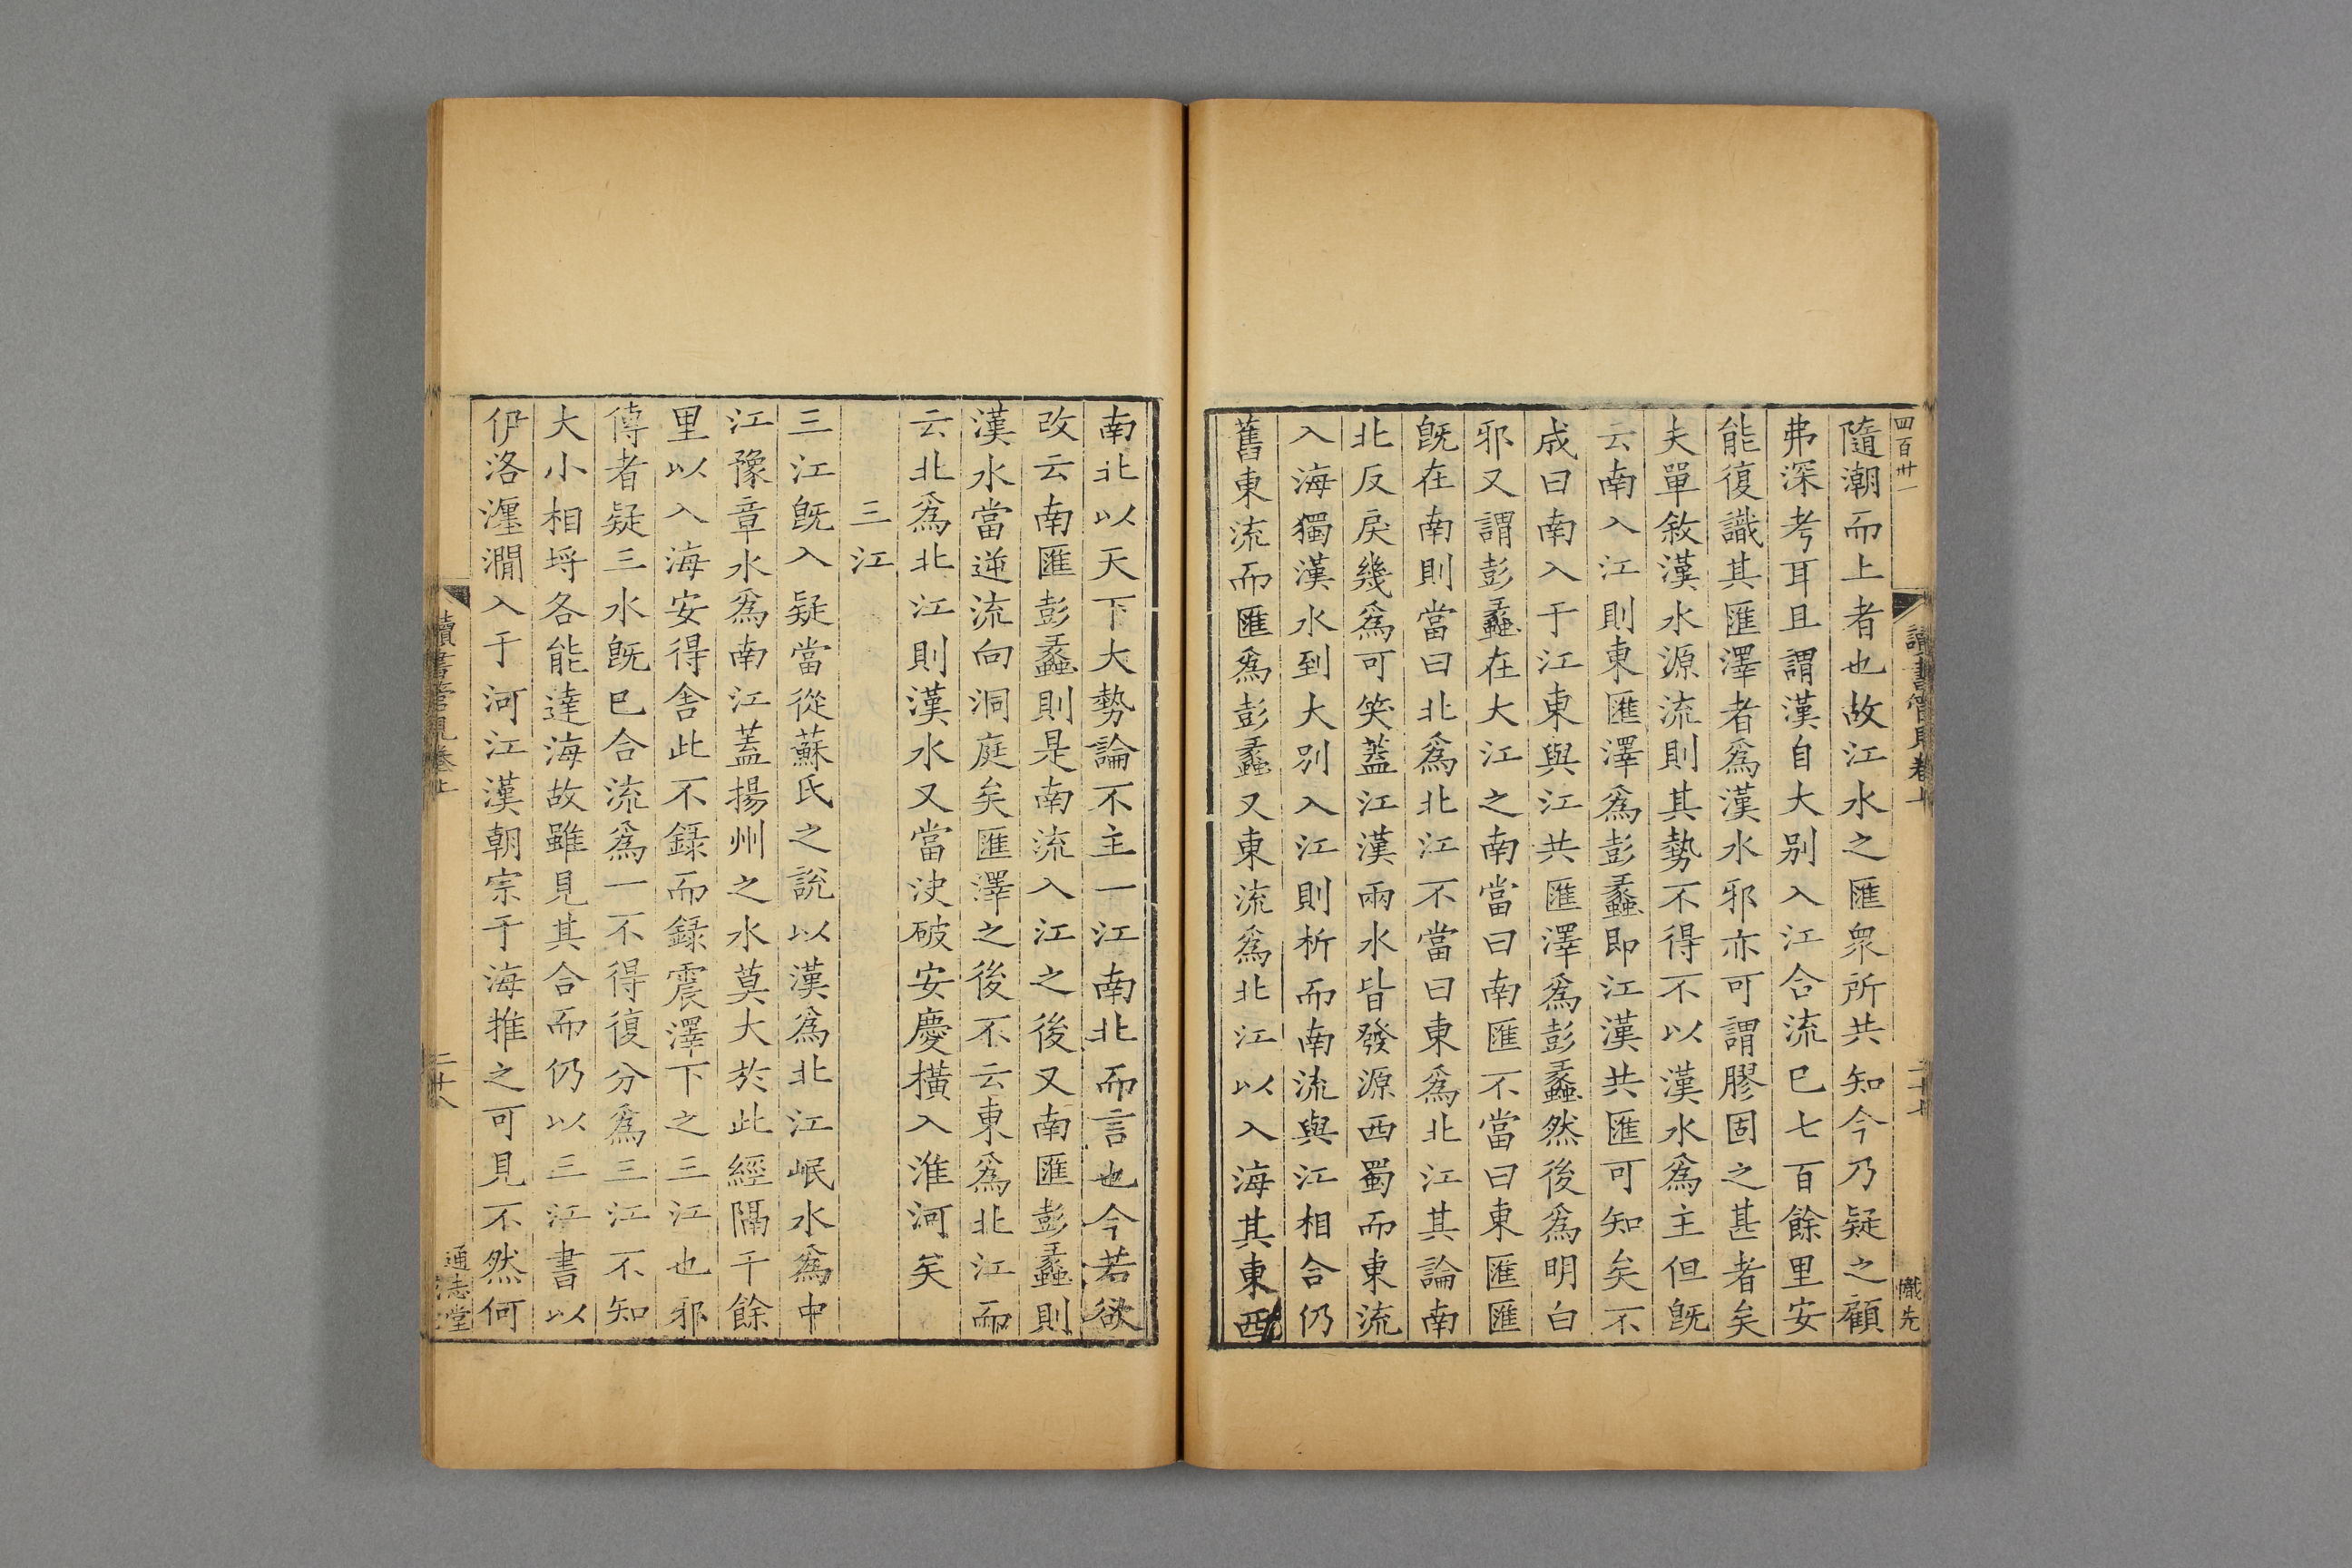 四百卅一
讀書管見卷上
二十七
幟先
隨潮而上者也故江水之匯衆所共知今乃疑之顧
弗深考耳且謂漢自大别入江合流巳七百餘里安
能復識其匯澤者爲漢水邪亦可謂膠固之甚者矣
夫單敘漢水源流則其勢不得不以漢水爲主但旣
云南入江則東匯澤爲彭蠡即江漢共匯可知矣不
成曰南入于江東與江共匯澤爲彭蠡然後爲明白
邪又謂彭蠡在大江之南當曰南匯不當曰東匯匯
旣在南則當曰北爲北江不當曰東爲北江其論南
北反戾幾爲可笑蓋江漢兩水皆發源西蜀而東流
入海獨漢水到大别入江則析而南流與江相合仍
舊東流而匯爲彭蠡又東流爲北江以入海其東西
南北以天下大勢論不主一江南北而言也今若欲
改云南匯彭蠡則是南流入江之後又南匯彭蠡則
漢水當逆流向洞庭矣匯澤之後不云東爲北江而
云北爲北江則漢水又當決破安慶橫入淮河矣
三江
三江旣入疑當從蘇氏之說以漢爲北江岷水爲中
江豫章水爲南江蓋揚州之水莫大於此經隔千餘
里以入海安得舍此不録而録震澤下之三江也邪
傳者疑三水旣巳合流爲一不得復分爲三江不知
大小相埒各能達海故雖見其合而仍以三江書以
伊洛瀍澗入于河江漢朝宗于海推之可見不然何
讀書管見卷上
二十八
通志堂